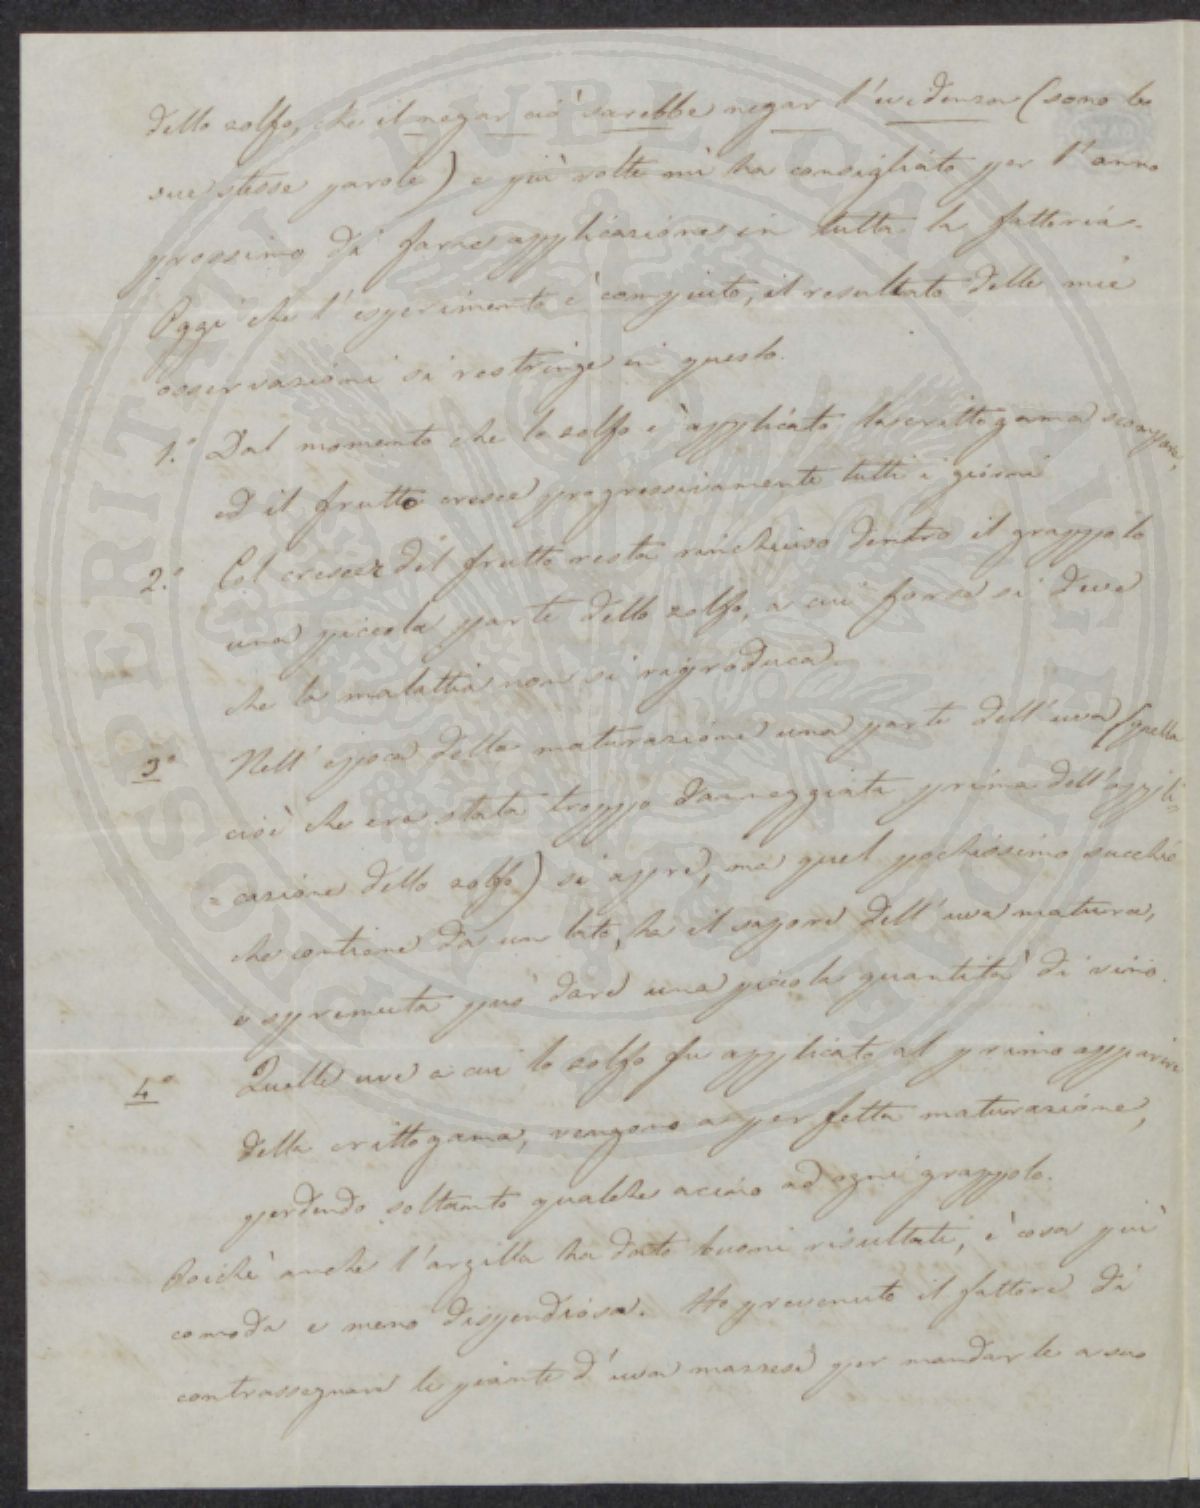 dello zolfo, che il negar ciò sarebbe negar l'evidenza (sono le
sue stesse parole) e più volte mi ha consigliato per l'anno
prossimo di farne applicazione in tutta la fattoria.
Oggi che l'esperimento è compiuto, il resultato delle mie
osservazioni si restringe in questo.
1.° Dal momento che lo zolfo è applicato la crittogama scompare,
ed il frutto cresce progressivamente tutti i giorni
2.° Col crescer del frutto resta rinchiuso dentro il grappolo
una piccola parte dello zolfo, a cui forse si deve
che la malattia non si riproduca.
3° Nell'epoca della maturazione una parte dell'uva (quella
cioè che era stata troppo danneggiata prima dell'appli=
=cazione dello zolfo) si apre, ma quel pochissimo succhio
che contiene da un lato, ha il sapore dell'uva matura,
e spremuta può dare una piccola quantità di vino.
4° Quelle uve a cui lo zolfo fu applicato al primo apparire
della crittogama, vengono a perfetta maturazione,
perdendo soltanto qualche acino ad ogni grappolo.
Poichè anche l'argilla ha dato buoni risultati, è cosa più
comoda e meno dispendiosa. Ho prevenuto il fattore di
contrassegnare le piante d'uva marzese per mandarle a suo